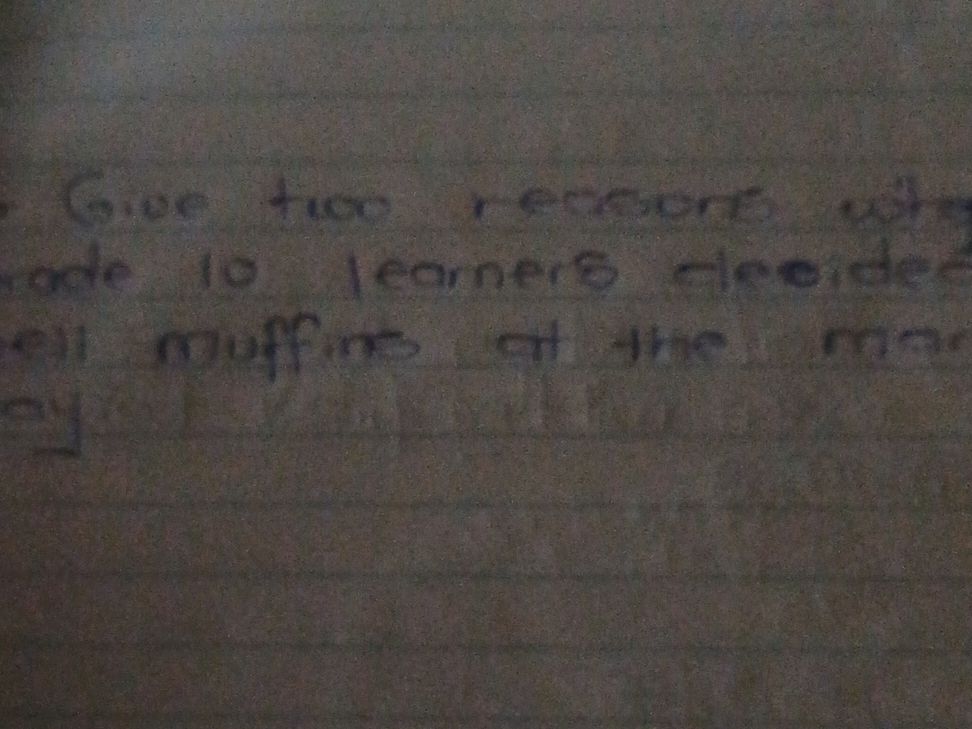 Give two reasons why
10 learners decided
muffins at the